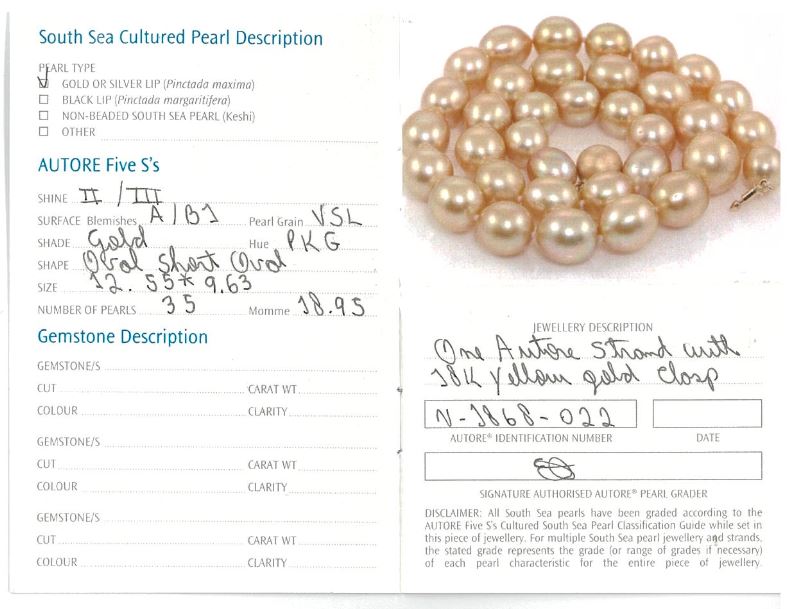 South Sea Cultured Pearl Description
PEARL TYPE
GOLD OR SILVER LIP (Pinctada maxima)
BLACK LIP (Pinctada margaritifera)
NON-BEADED SOUTH SEA PEARL (Keshi)
OTHER
AUTORE Five S's
SHINE II / III
SURFACE Blemishes A/B1 Pearl Grain VSL
SHADE Gold Hue PKG
SHAPE Oval Short Oval
SIZE 12.55*9.63
NUMBER OF PEARLS 35 Momme 18.95
Gemstone Description
GEMSTONE/S
CUT CARAT WT.
COLOUR CLARITY
GEMSTONE/S
CUT CARAT WT
COLOUR CLARITY
GEMSTONE/S
CUT CARAT WT.
COLOUR CLARITY
JEWELLERY DESCRIPTION
One Autore Strand with
18K Yellow gold Clasp
N-1868-022
AUTORE® IDENTIFICATION NUMBER DATE
SIGNATURE AUTHORISED AUTORE® PEARL GRADER
DISCLAIMER: All South Sea pearls have been graded according to the
AUTORE Five S's Cultured South Sea Pearl Classification Guide while set in
this piece of jewellery. For multiple South Sea pearl jewellery and strands,
the stated grade represents the grade (or range of grades if necessary)
of each pearl characteristic for the entire piece of jewellery.